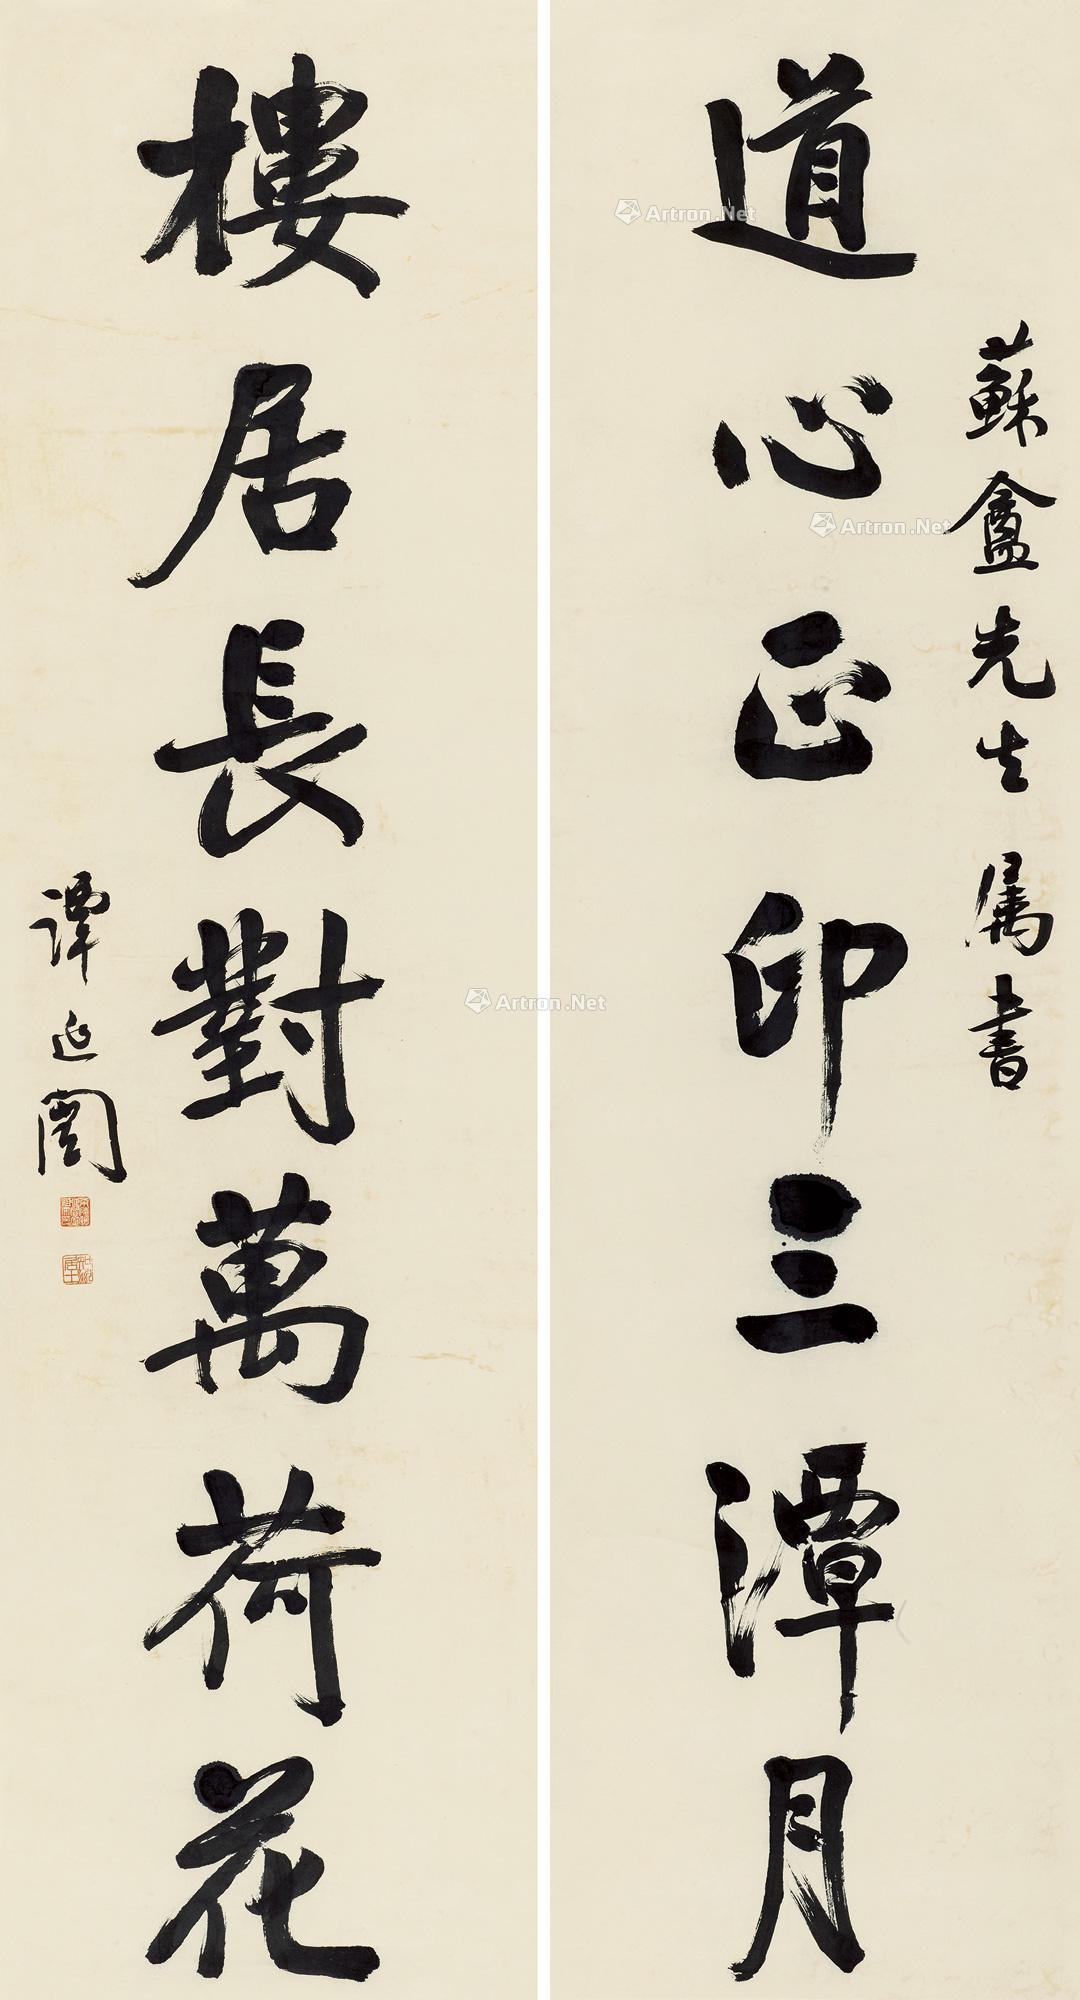 蘇盦先生属書
道心正印三潭月
樓居長對萬荷花
譚延闓
Artron.Net
Artron.Net
Artron.Net